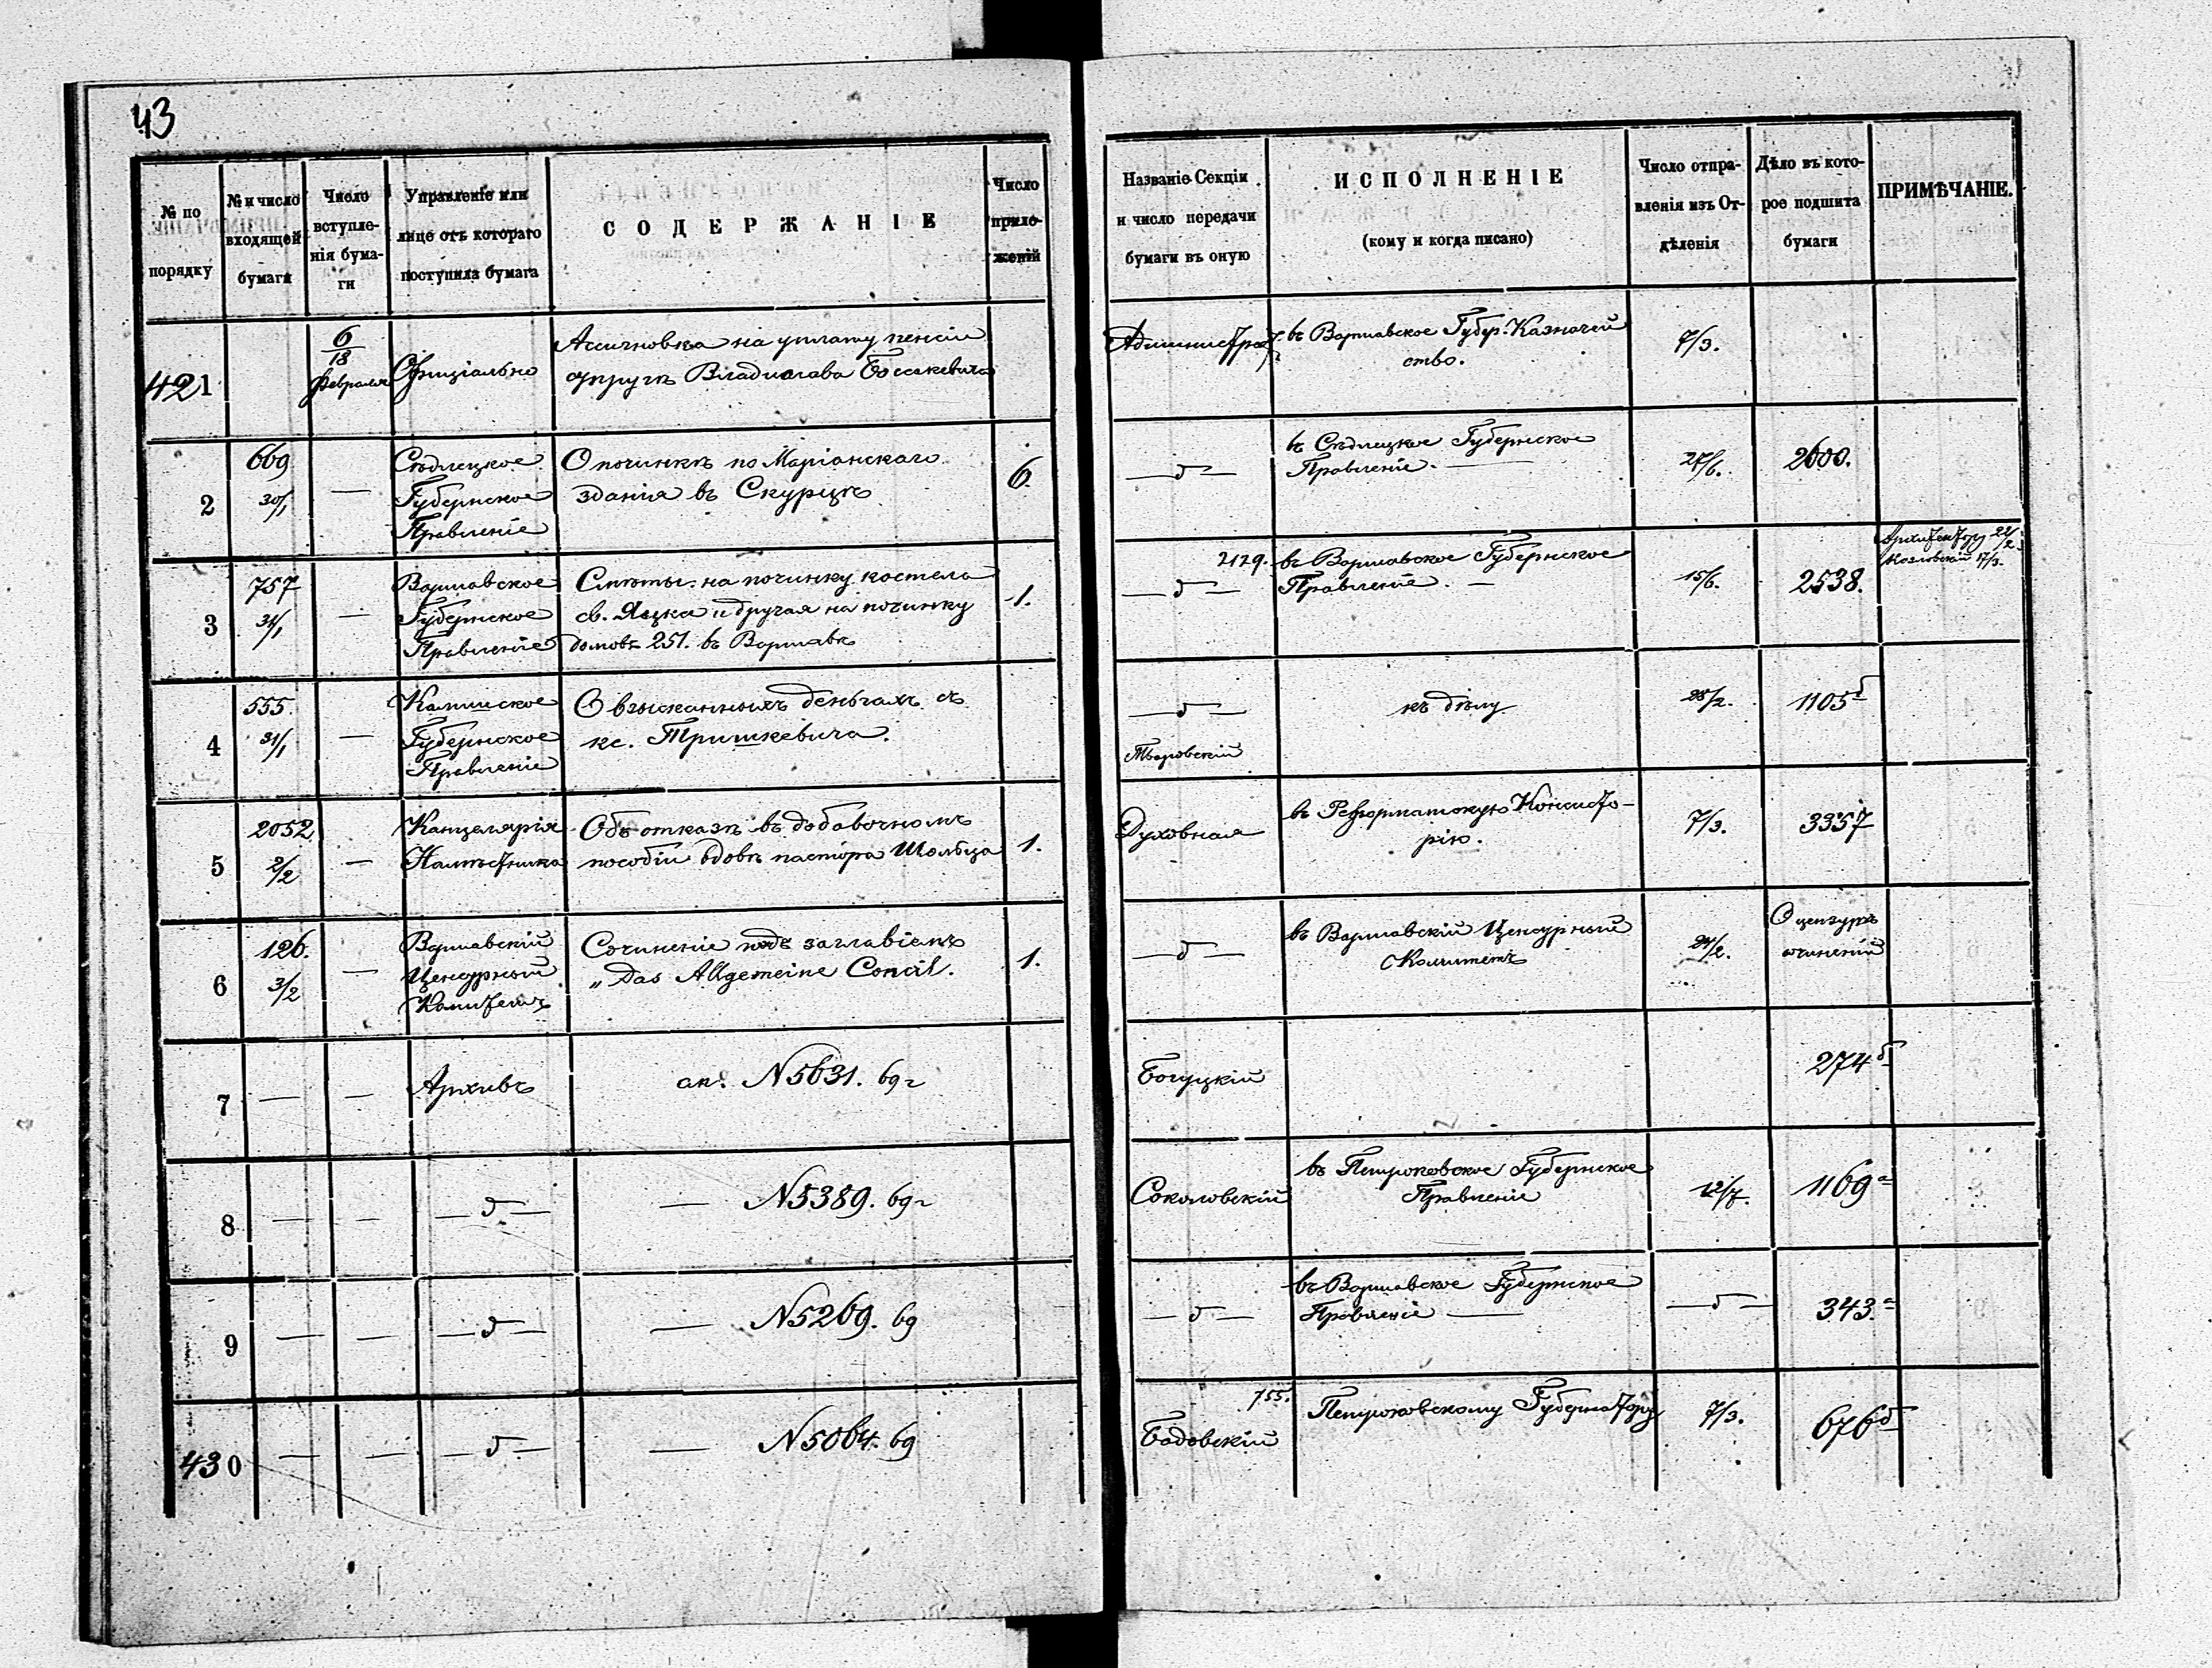 43
№ по порядку
№ и число входящей бумаги
Число вступле-нія бума-ги
Управленіе или лице отъ котораго поступила бумага
СОДЕРЖАНІЕ
Число прило-женій
Названіе Секціи и число передачи бумаги въ оную
ИСПОЛНЕНІЕ
(кому и когда писано)
Число отпра-вленія изъ От-дѣленія
Дѣло въ кото-рое подшита бумаги
ПРИМѢЧАНІЕ.
421
6/18 февраля
Офиціально
Ассигновка на уплату пенсіи
супругѣ Владислава
въ Варшавское Губер. Казначей
ство.
7/3.
2
669
30/1
—
Сѣдлецкое
Губернское
Правленіе
О починкѣ по Маріанскаго
зданія въ Скурцѣ
6.
— д —
въ Сѣдлецкое Губернское
Правленіе. —
27/6.
2600.
3
757
31/1
—
Варшавское
Губернское
Правленіе
Смѣты на починку костела
св. Яцка и другая на починку
домовъ 251. въ Варшавѣ
1.
2129.
— д —
въ Варшавское Губернское
Правленіе. —
15/6.
2538.
Архитектору 22/2.
Козловскій 17/3.
4
555.
31/1
—
Калишское
Губернское
Правленіе
О взысканныхъ деньгахъ съ
кс. Тришкевича.
— д —
къ дѣлу
28/2.
1105б
5
2052
2/2
—
Канцелярія
Намѣстника
Объ отказѣ въ добавочномъ
пособіи вдовѣ пастора Шольца
1.
Духовная
въ Реформатскую Консисто-
рію.
7/3.
3357
6
126.
3/2
—
Варшавскій
Цензурный
Комитетъ
Сочиненіе подъ заглавіемъ
„Das Allgemeine Concil.
1.
— д —
въ Варшавскій Цензурный
Комитетъ
24/2.
О цензурѣ
сочиненій
7
— —
Архивъ
ак. N5631. 69 г
Богуцкій
274б
8
— —
— д —
— N5389. 69 г
Соколовскій
въ Петроковское Губернское
Правленіе
12/7.
1169а
9
— —
— д —
— N5269. 69
— д —
въ Варшавское Губернское
Правленіе —
— д —
343.а
430
— —
— д —
— N5064. 69
755.
Бадовскій
Петроковскому Губернатору
7/3.
676б